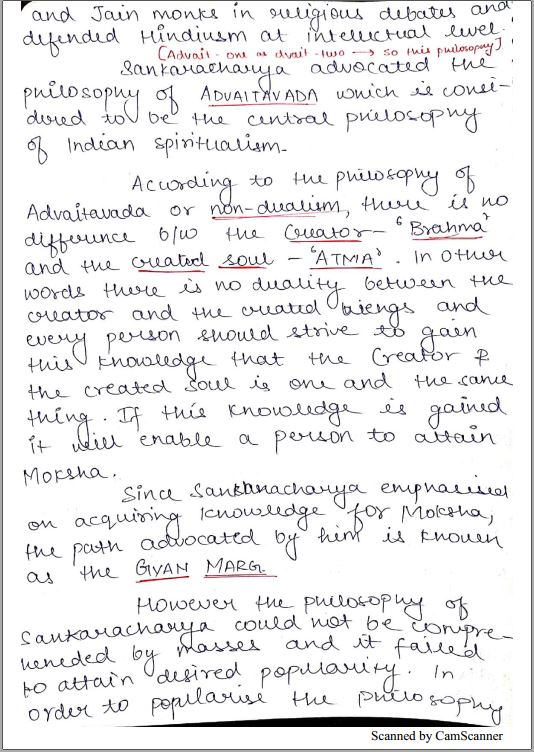 and Jain monks in religious debates and
defended Hinduism at intelectual level.
[Advait - one as dvait - two → so this philosophy]
Sankaracharya advocated the
philosophy of ADVAITAVADA which is consi-
dered to be the central philosophy
of Indian spiritualism.
According to the philosophy of
Advaitavada or non-dualism, there is no
difference b/w the Creator - 'Brahma'
and the created soul - 'ATMA'. In other
words there is no duality between the
creator and the created biengs and
every person should strive to gain
this knowledge that the Creator &
the created soul is one and the same
thing. If this knowledge is gained
it will enable a person to attain
Moksha.
Since Sankharacharya emphasised
on acquiring knowledge for Moksha,
the path advocated by him is known
as the GIYAN MARG.
However the philosophy of
Sankaracharya could not be compre-
heneded by masses and it failed
to attain desired popularity. In
order to popularise the philosophy
Scanned by CamScanner